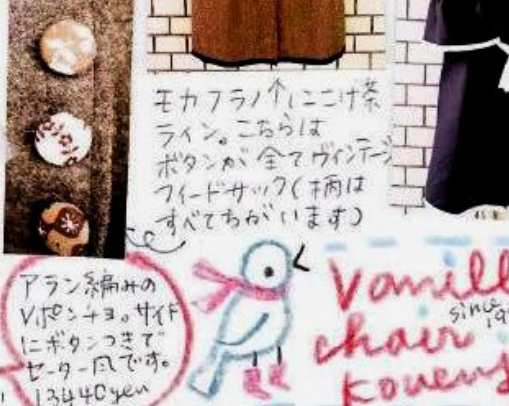 モカブラノ↑にこげ茶
ライン。こちらは
ボタンが全てヴィンテージ
フィードサック(柄は
すべてちがいます)
アラン編みの
Vポンチョ。サイド
にボタンつきで
セーター風です。
13440yen
Vanill
since
chair
Kouens